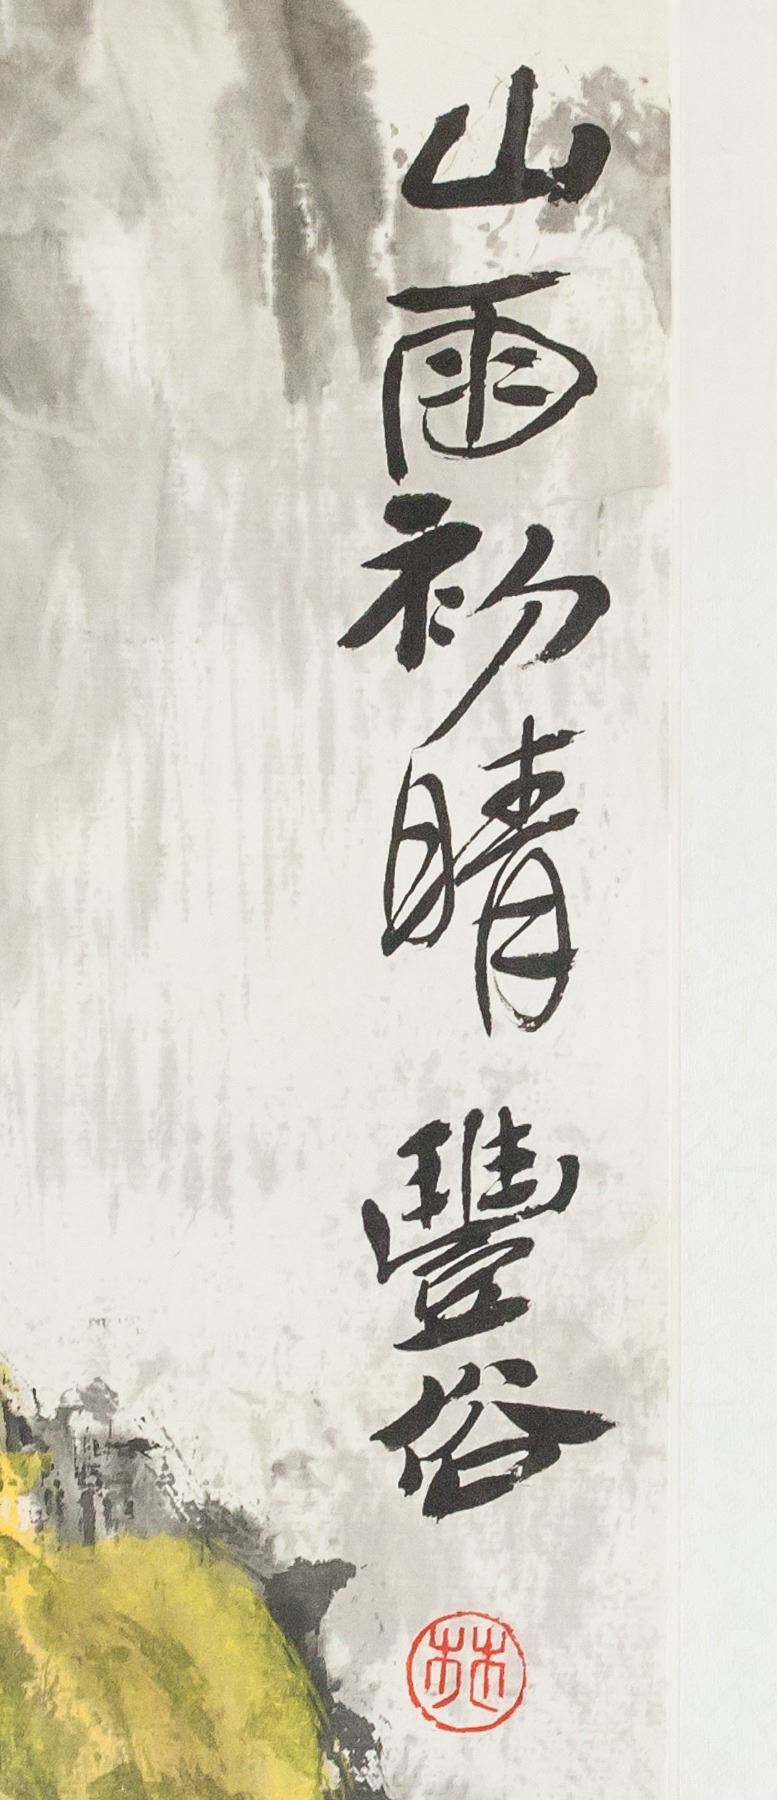 山雨初晴 豐俗
林